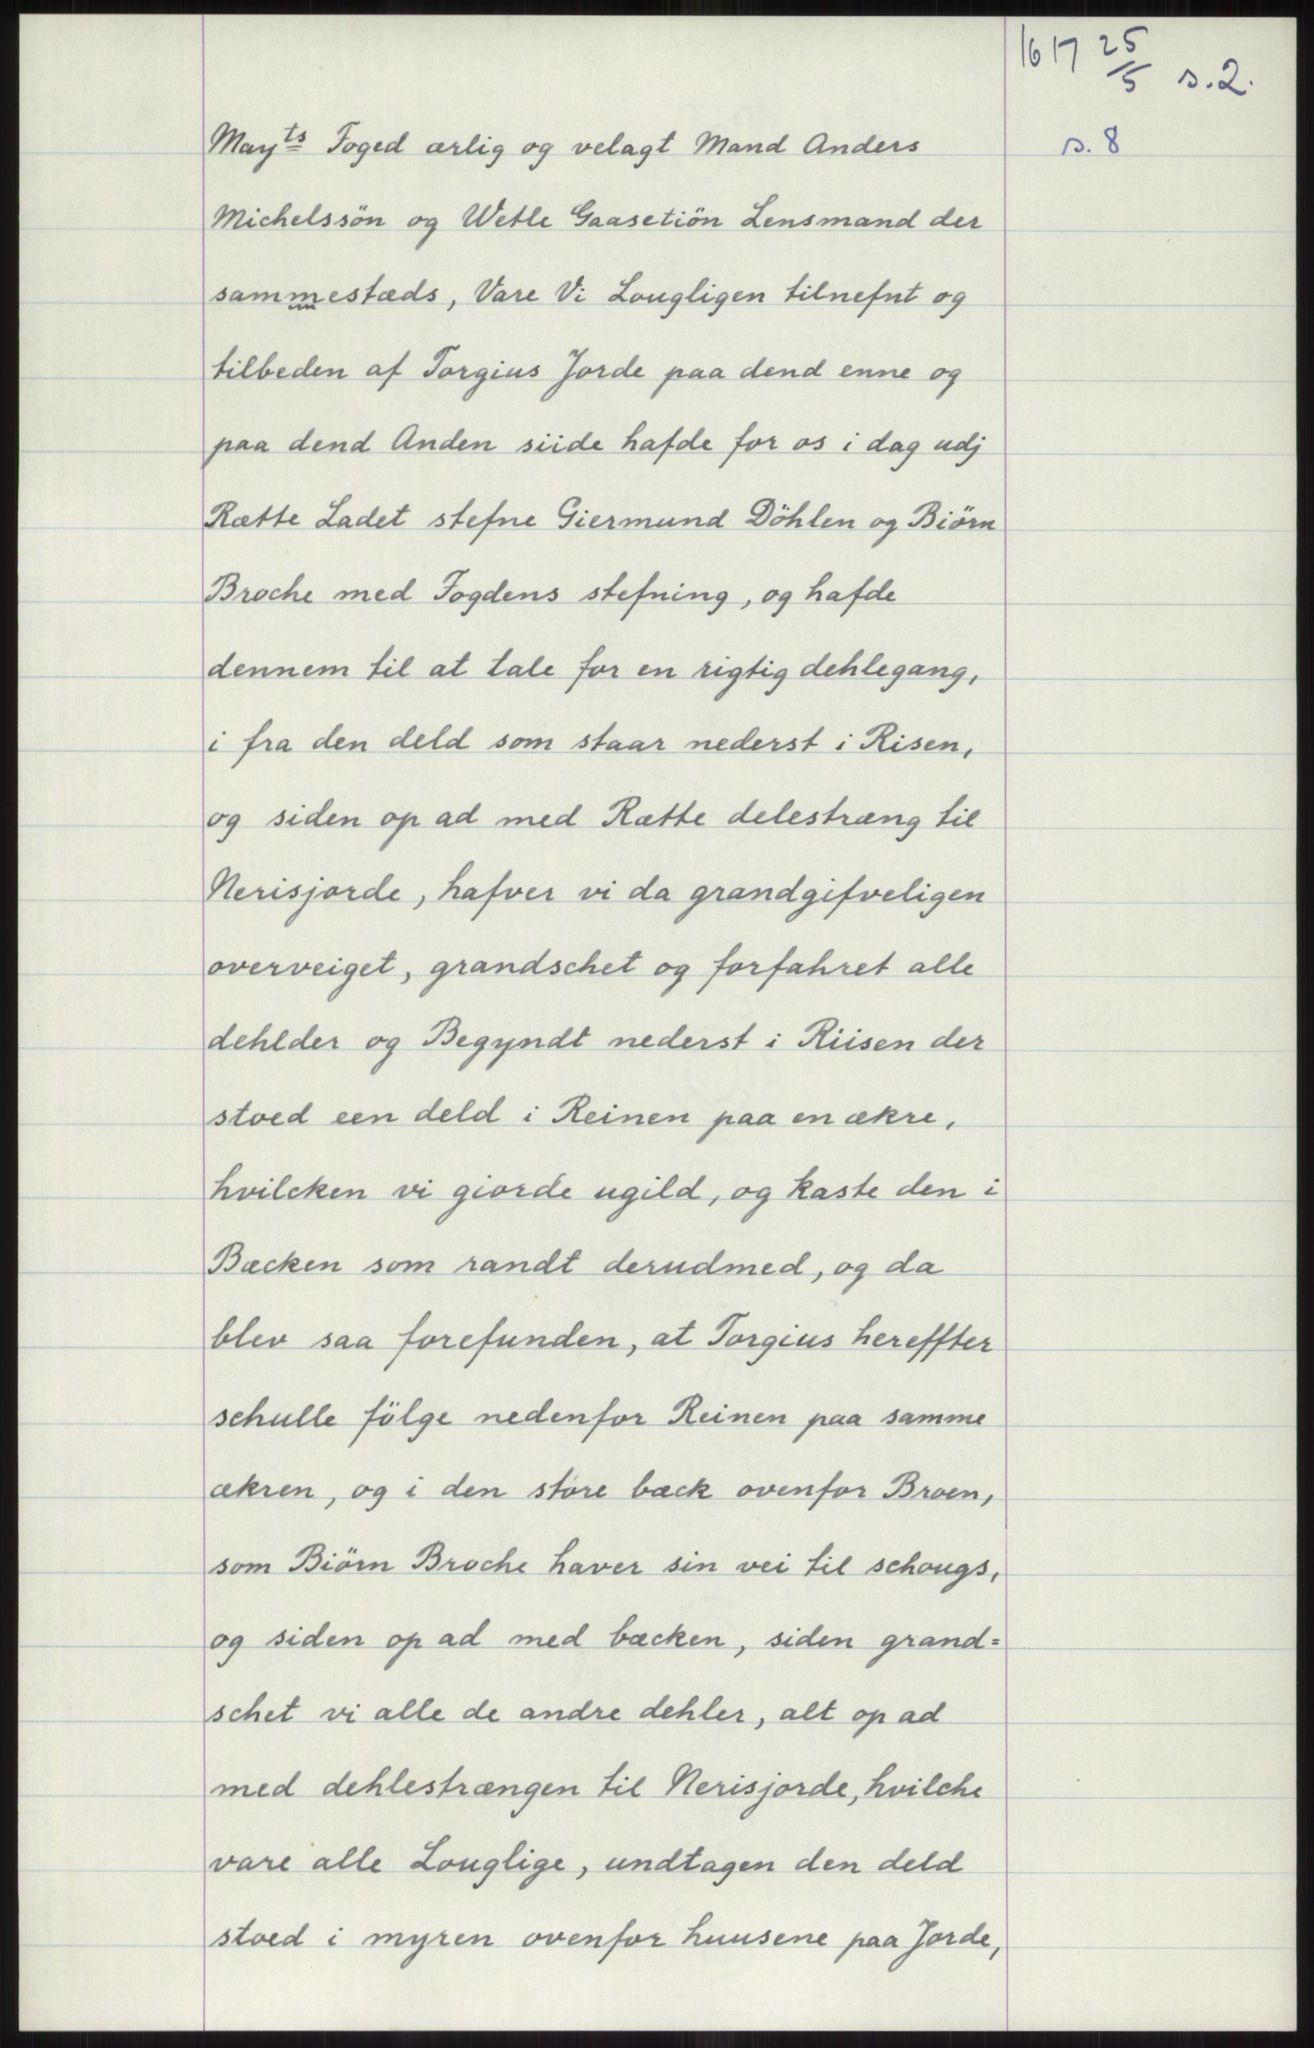 1617 25/5 s. 2.
s. 8
Mayts Foged ærlig og velagt Mand Anders
Michelssön og Wetle Gaasetiön Lensmand der
sammestæds, Vare Vi Lougligen tilnefnt og
tilbeden af Torgius Jorde paa dend enne og
paa dend Anden siide hafde for os i dag udj
Rætte Ladet stefne Giermund Döhlen og Biörn
Broche med Fogdens stefning, og hafde
dennem til at tale for en rigtig dehlegang,
i fra den deld som staar nederst i Risen,
og siden op ad med Rætte delestræng til
Nerisjorde, hafver vi da grandgifveligen
overveiget, grandschet og forfahret alle
dehlder og Begyndt nederst i Riisen der
stoed een deld i Reinen paa en ækre,
hvilcken vi giorde ugild, og kaste den i
Bæcken som randt derudmed, og da
blev saa forefunden, at Torgius hereffter
schulle fölge nedenfor Reinen paa samme
ækren, og i den store bæck ovenfor Broen,
som Biörn Broche haver sin vei til schougs,
og siden op ad med bæcken, siden grand=
schet vi alle de andre dehler, alt op ad
med dehlestrængen til Nerisjorde, hvilche
vare alle Louglige, undtagen den deld
stoed i myren ovenfor huusene paa Jorde,